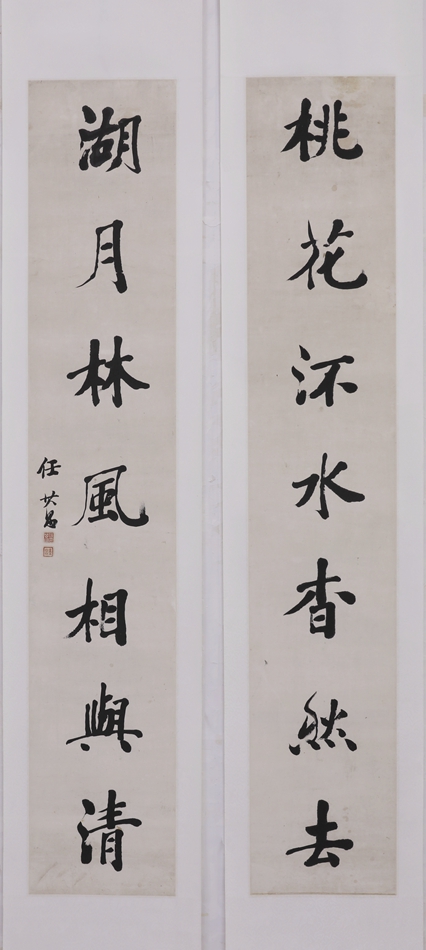 桃花流水杳然去
湖月林風相與清
任其昌